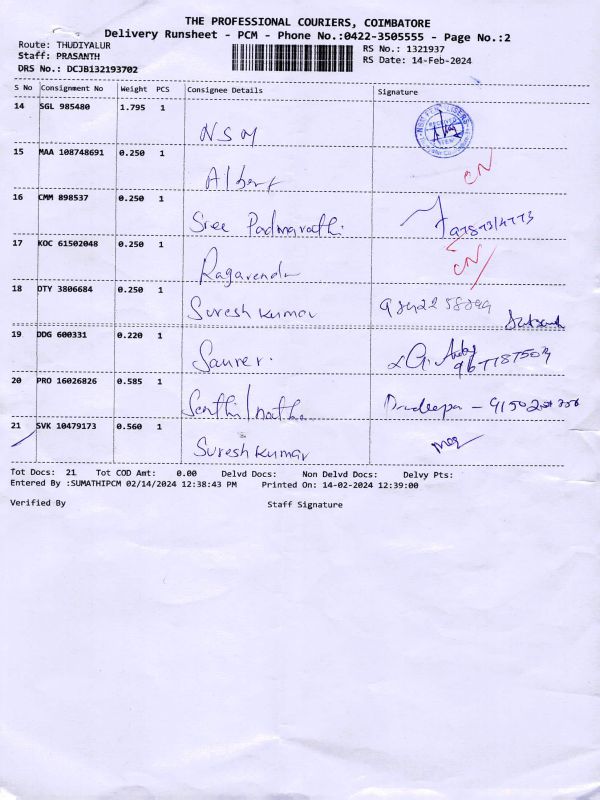 THE PROFESSIONAL COURIERS, COIMBATORE
Delivery Runsheet - PCM - Phone No.:0422-3505555 - Page No.:2
Route: THUDIYALUR
Staff: PRASANTH
DRS No.: DCJB132193702
RS No.: 1321937
RS Date: 14-Feb-2024
S No Consignment No Weight PCS Consignee Details Signature
14 SGL 985480 1.795 1
NSM
15 MAA 108748691 0.250 1
Albert CN
16 CMM 898537 0.250 1
Sree Padmavathi
17 KOC 61502048 0.250 1
Ragavendra CN
18 OTY 3806684 0.250 1
Suresh kumar
19 DDG 600331 0.220 1
20 PRO 16026826 0.585 1
Senthilnathan
21 SVK 10479173 0.560 1
Suresh kumar
Tot Docs: 21 Tot COD Amt: 0.00 Delvd Docs: Non Delvd Docs: Delvy Pts:
Entered By :SUMATHIPCM 02/14/2024 12:38:43 PM Printed On: 14-02-2024 12:39:00
Verified By Staff Signature